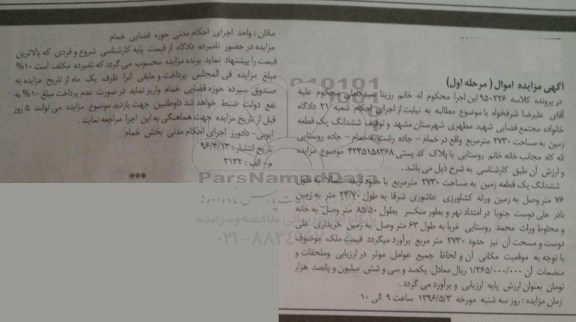 آگهی مزایده اموال ( مرحله اول)
در پرونده کلاسه ۹۵۰۲۲۶ این اجرا محکوم له خانم رزیتا محکوم علیه
آقای علیرضا شرفخواه با موضوع مطالبه به نیابت از اجرای احکام شعبه ۲۱ دادگاه
خانواده مجتمع قضایی شهید مطهری شهرستان مشهد و توقیف ششدانگ یک قطعه
زمین به مساحت ۲۷۳۰ مترمربع واقع در خمام - جاده رشت به خمام - جاده روستایی
اله کاه مجانب خانه خانم روستایی با پلاک کد پستی ۴۳۳۵۱۵۸۲۶۸ موضوع مزایده
و ارزش آن طبق کارشناسی به شرح ذیل می باشد.
ششدانگ یک قطعه زمین به مساحت ۲۷۳۰ مترمربع با حدود اربعه شمالا به طول
۷۶ متر وصل به زمین ورثه کشاورزی عاشوری شرقا به طول ۲۴/۷۰ متر به زمین
نادر علی دوست جنوبا در امتداد نهر و بطور منکسر بطول ۸۵/۵۰ متر وصل به خانه
و محاوط وراث محمد روستایی غربا به طول ۶۳ متر وصل به زمین خریداری علی
دوست و مسحت آن نیز حدود ۲۷۳۰ متر مربع برآورد میگردد قیمت ملک موصوف
با توجه به موقعیت مکانی آن و لحاظ جمیع عوامل موثر در ارزیابی وملحقات و
منضمات آن ۱/۳۶۵/۰۰۰/۰۰۰ ریال معادل یکصد و سی و شش میلیون و پانصد هزار
تومان بعنوان ارزش پایه ارزیابی و برآورد می گردد .
زمان مزایده : روز سه شنبه مورخه ۱۳۹۶/۵/۳ ساعت ۹ الی ۱۰
مکان: واحد اجرای احکام مدنی حوزه قضایی خمام
مزایده در حضور نامبرده دادگاه از قیمت پایه کارشناسی شروع و فردی که بالاترین
قیمت را پیشنهاد نماید برنده مزایده محسوب می گردد که نامبرده مکلف است ۱۰%
مبلغ مزایده فی المجلس پرداخت و مابقی الزا ظرف یک ماه از تاریخ مزایده به
صندوق سپرده حوزه قضایی خمام واریز نماید در صورت عدم پرداخت مبلغ ۱۰% به
نفع دولت ضبط خواهد شد داوطلبین جهت بازدید موضوع مزایده می توانند ۵ روز
قبل از تاریخ مزایده جهت هماهنگی به این اجرا مراجعه نمایند .
ایوبی- دادورز اجرای احکام مدنی بخش خمام
تاریخ انتشار: ۹۶/۴/۱۳
م/ الف : ۲۱۳۲
***
ParsNamadData